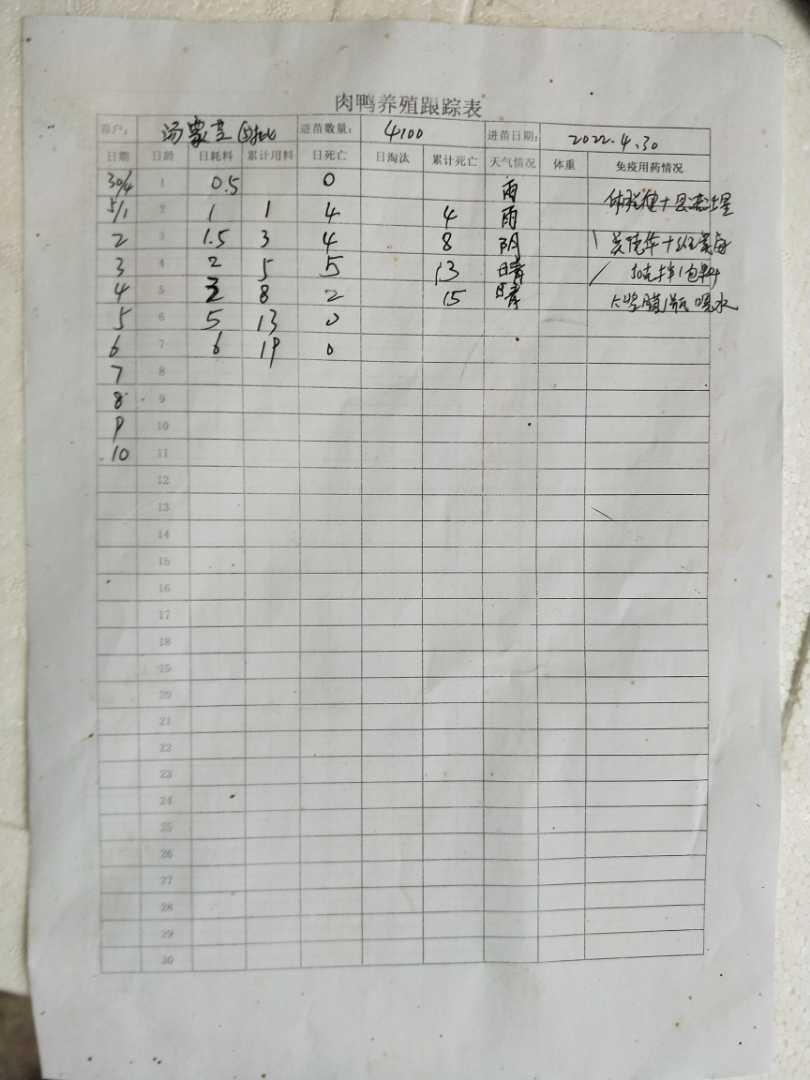 肉鸭养殖跟踪表
客户： 汤蒙芝 进苗数量： 4100 进苗日期： 2022.4.30
日期 日龄 日耗料 累计用料 日死亡 日淘汰 累计死亡 天气情况 体重 免疫用药情况
30/4 1 0.5 0 雨
5/1 2 1 1 4 4 雨
2 3 1.5 3 4 8 阴
3 4 2 5 5 13 晴
4 5 3 8 2 15 晴
5 6 5 13 0
6 7 6 19 0
7 8
8 9
9 10
10 11
12
13
14
15
16
17
18
19
20
21
22
23
24
25
26
27
28
29
30